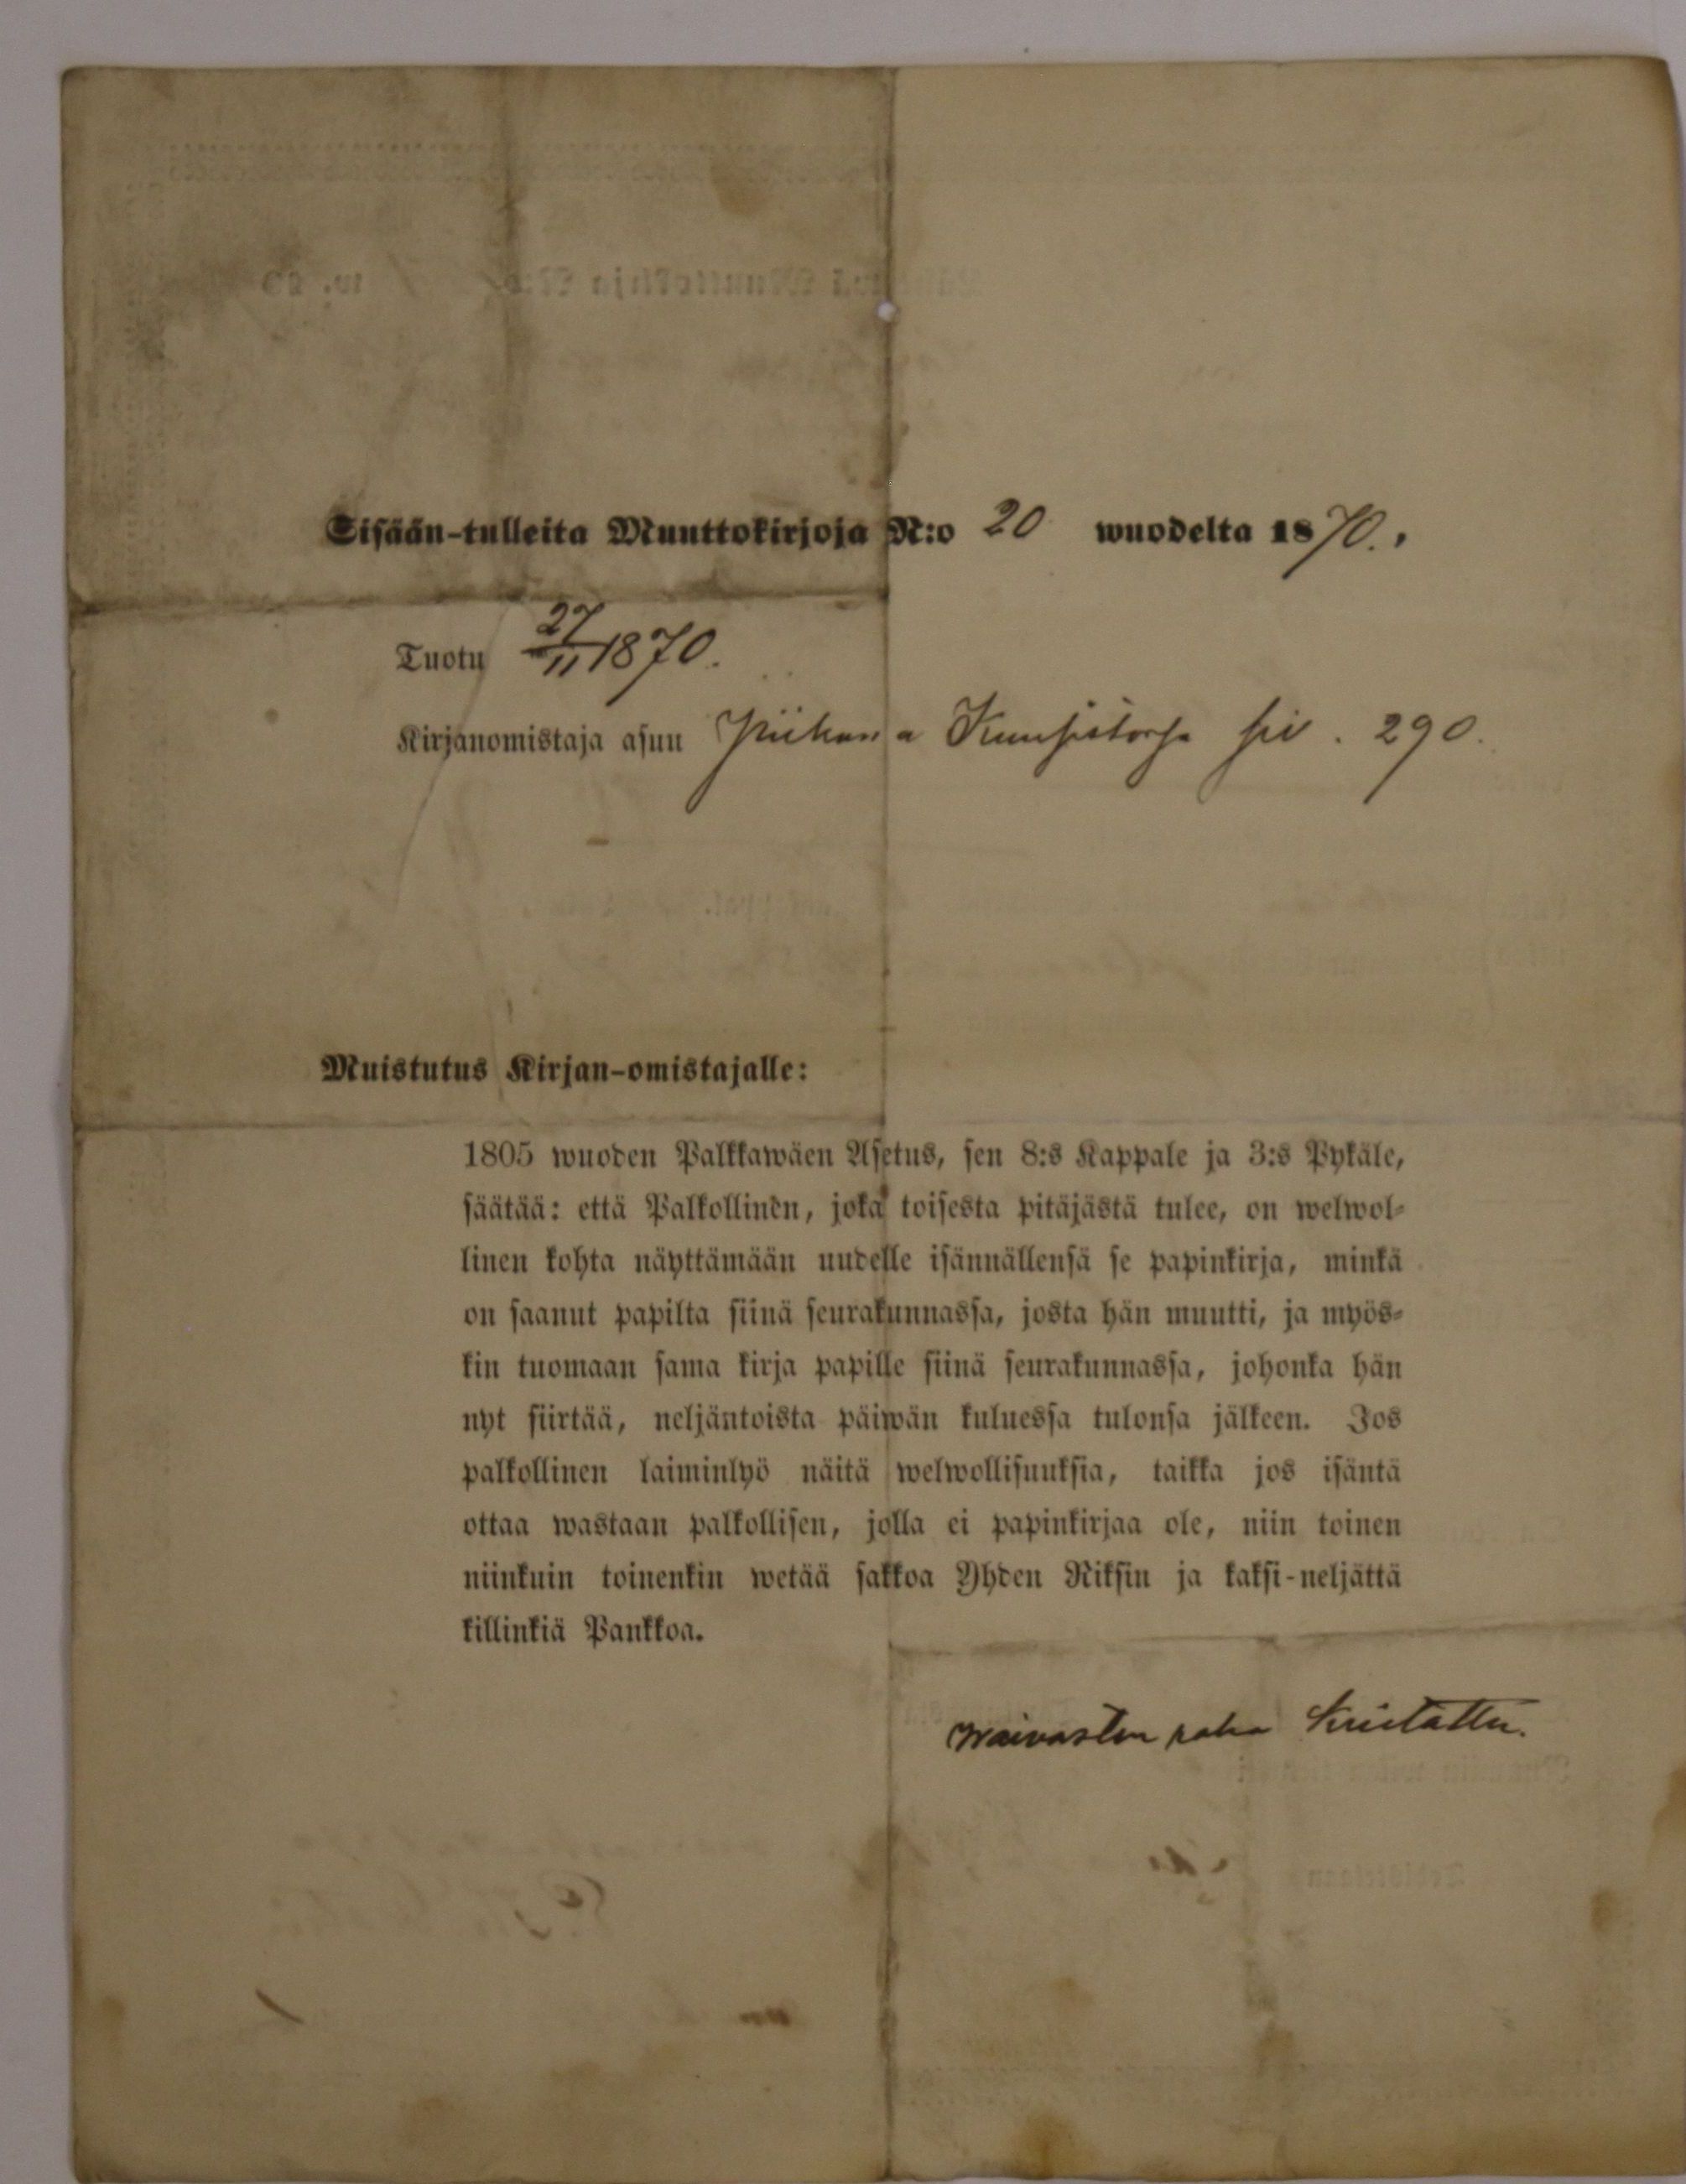 Sisään-tulleita Muuttokirjoja N:o 20 wuodelta 1870.,
Tuotu 27/11 1870.
Kirjanomistaja asuu Piikana siv. 290.
Muistutus Kirjan-omistajalle:
1805 wuoden Palkkawäen Asetus, sen 8:s Kappale ja 3:s Pykäle,
säätää: että Palkollinen, joka toisesta pitäjästä tulee, on welwol-
linen kohta näyttämään uudelle isännällensä se papinkirja, minkä
on saanut papilta siinä seurakunnassa, josta hän muutti, ja myös-
kin tuomaan sama kirja papille siinä seurakunnassa, johonka hän
nyt siirtää, neljäntoista päiwän kuluessa tulonsa jälkeen. Jos
palkollinen laiminlyö näitä welwollisuuksia, taikka jos isäntä
ottaa wastaan palkollisen, jolla ei papinkirjaa ole, niin toinen
niinkuin toinenkin wetää sakkoa Yhden Riksin ja kaksi-neljättä
killinkiä Pankkoa.
Waivasten raha kuitattu.